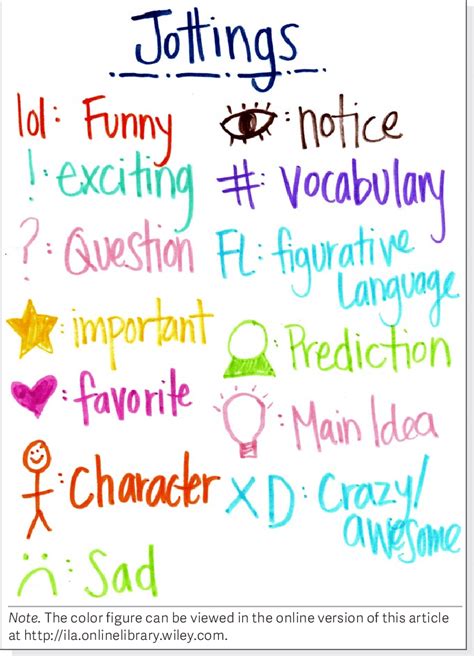 Jottings
lol: Funny
!: exciting
?: Question
: important
: favorite
: Character
: Sad
: notice
#: vocabulary
FL: figurative
Language
: Prediction
: Main Idea
XD: Crazy/
awesome
Note. The color figure can be viewed in the online version of this article
at http://ila.onlinelibrary.wiley.com.